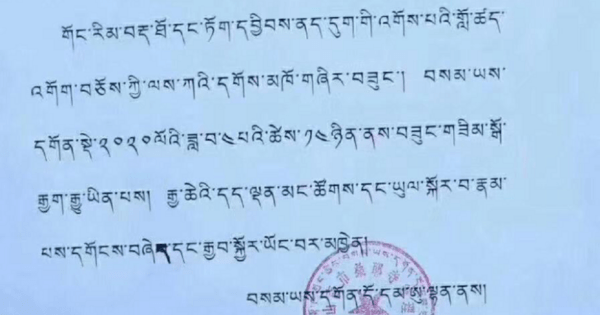 གོང་རིམ་བརྡ་ཐོ་དང་ཏོག་དབྱིབས་ནད་དུག་གི་འགོས་པའི་གློ་ཚད་
འགོག་བཅོས་ཀྱི་ལས་ཀའི་དགོས་མཁོ་གཞིར་བཟུང་། བསམ་ཡས་
དགོན་སྡེ་༢༠༢༠ལོའི་ཟླ་བ་༤པའི་ཚེས་༡༤ཉིན་ནས་བཟུང་གཟིམ་སྒོ་
རྒྱག་རྒྱུ་ཡིན་པས། རྒྱ་ཆེའི་དད་ལྡན་མང་ཚོགས་དང་ཡུལ་སྐོར་བ་རྣམ་
པས་དགོངས་བཞེས་དང་རྒྱབ་སྐྱོར་ཡོང་བར་མཁྱེན།
བསམ་ཡས་དགོན་དོ་དམ་ཨུ་ལྷན་ནས།